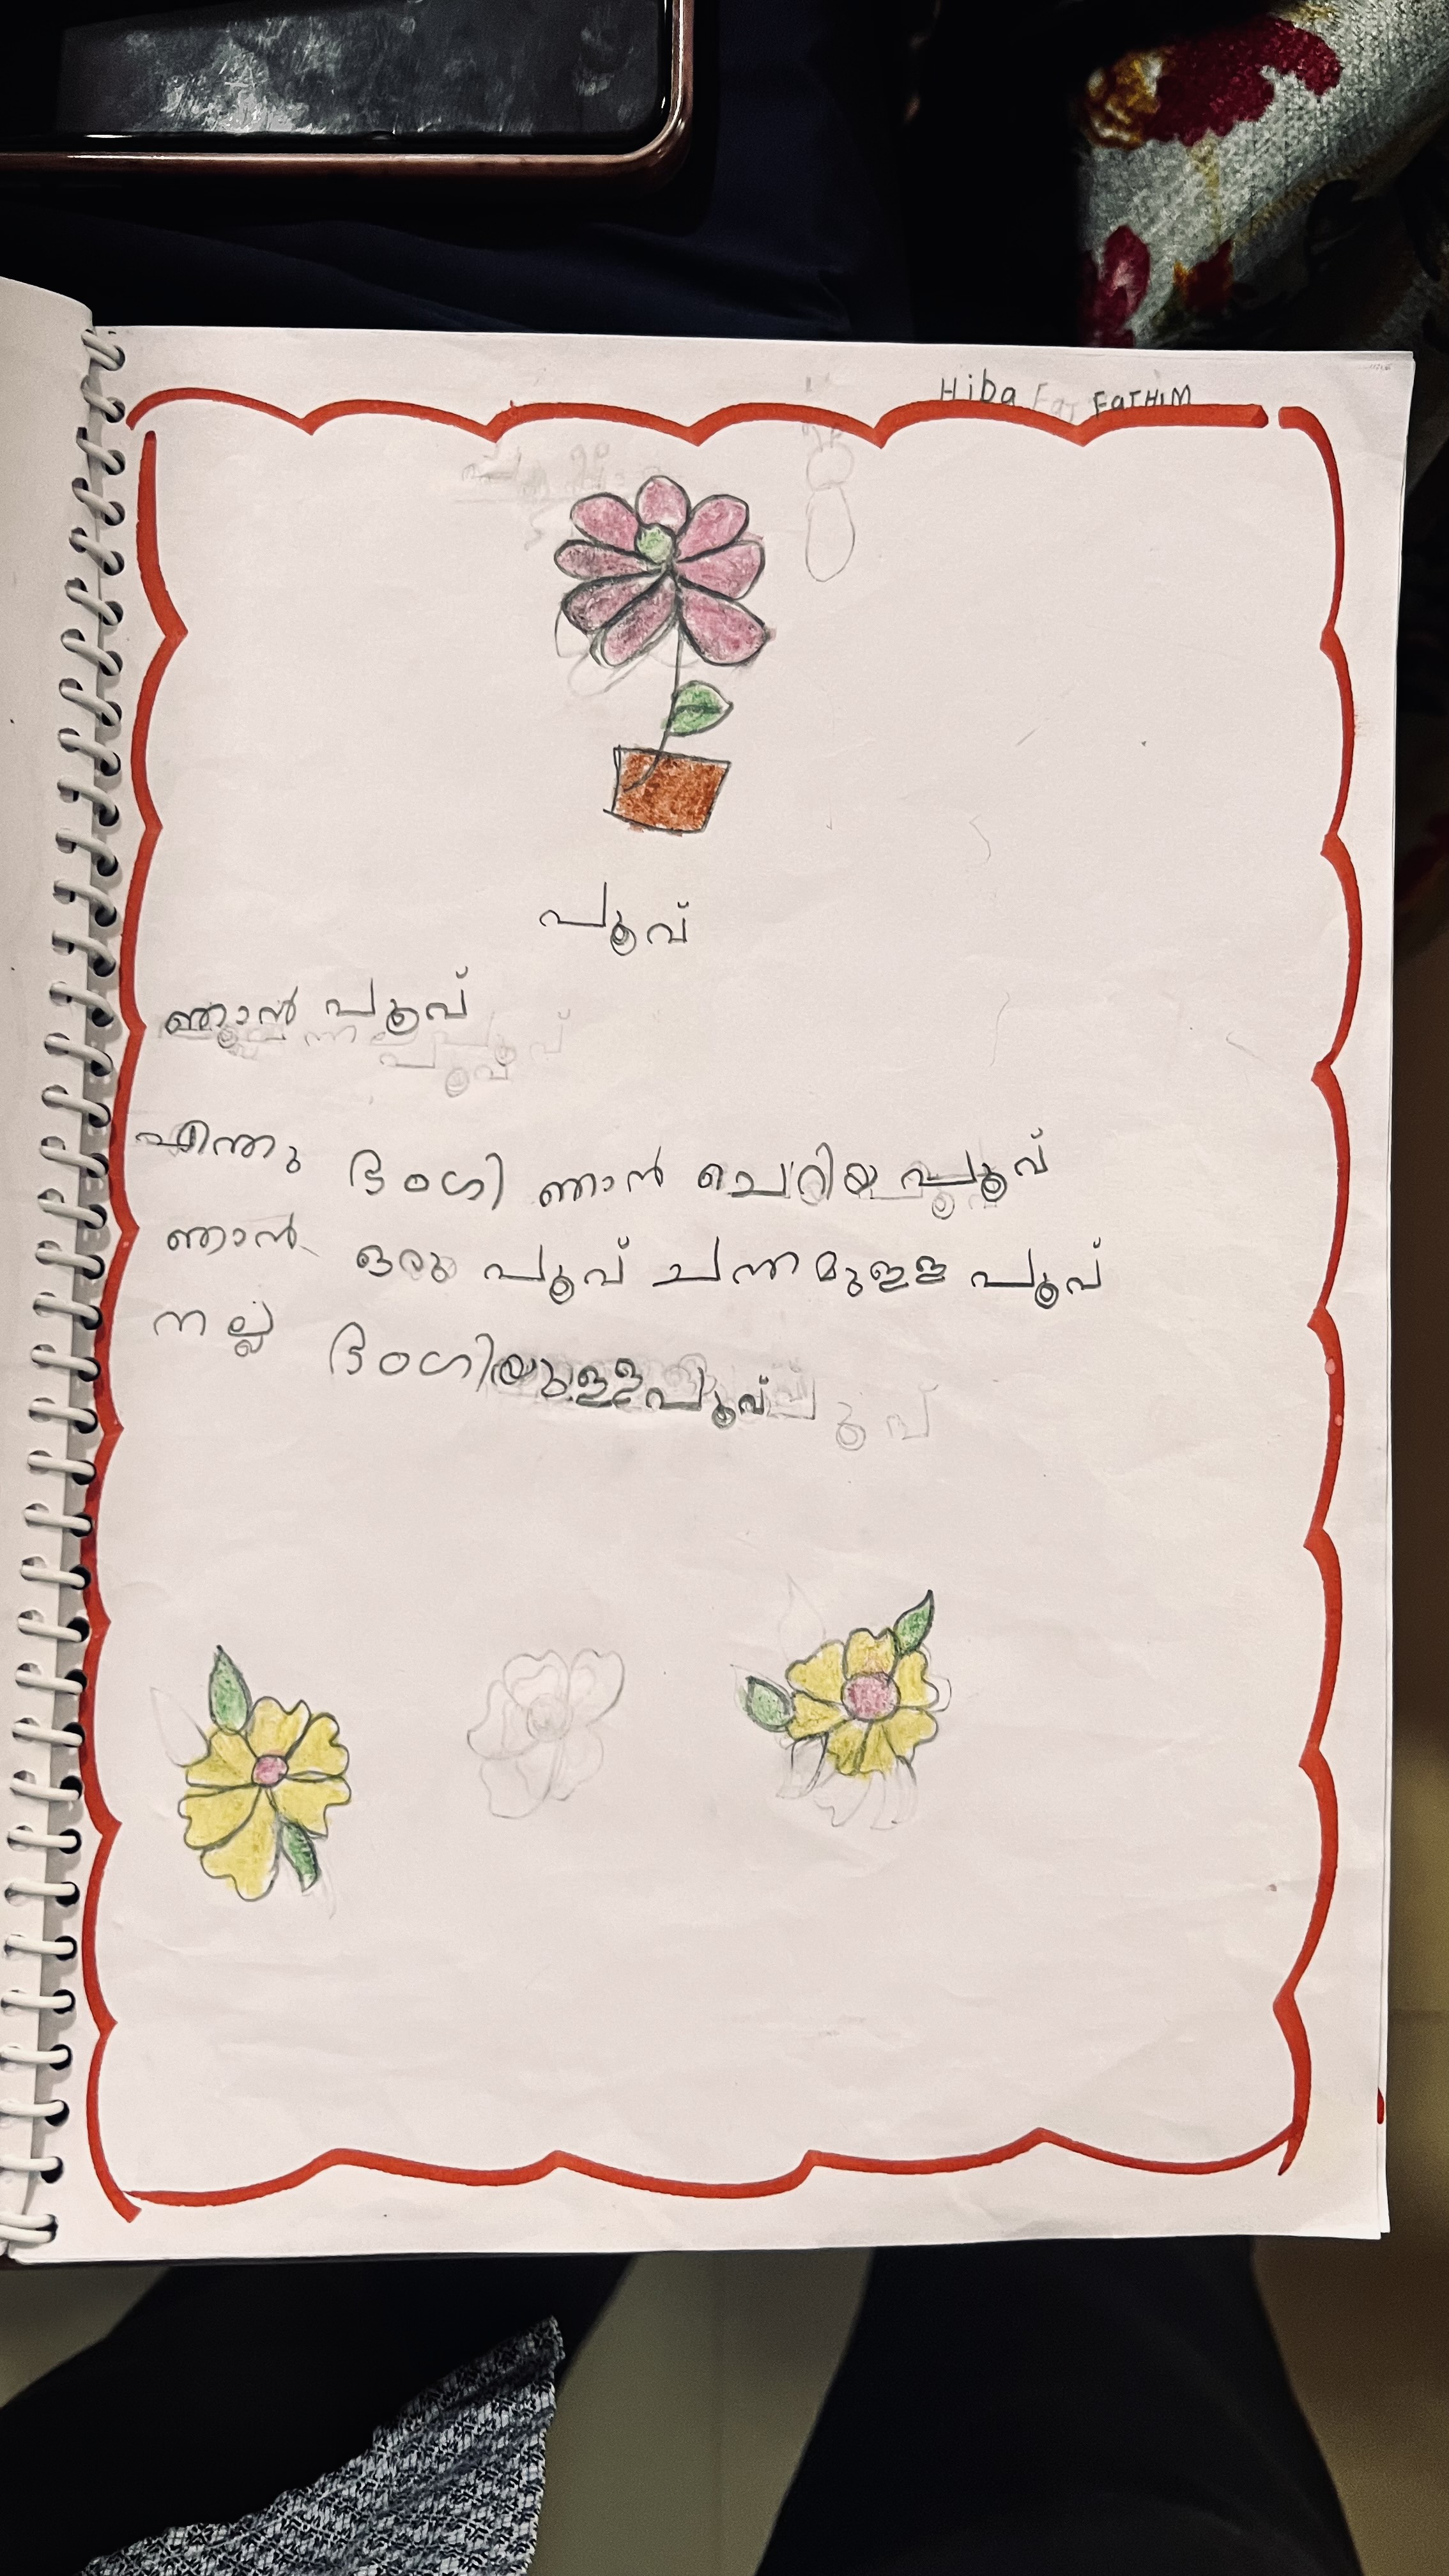 Hiba FaTHIM
പൂവ്
ഞാൻ പൂവ്
എന്തു ഭംഗി ഞാൻ ചെറിയ പൂവ്
ഞാൻ ഒരു പൂവ് ചന്തമുള്ള പൂവ്
നല്ല ഭംഗിയുള്ള പൂവ്